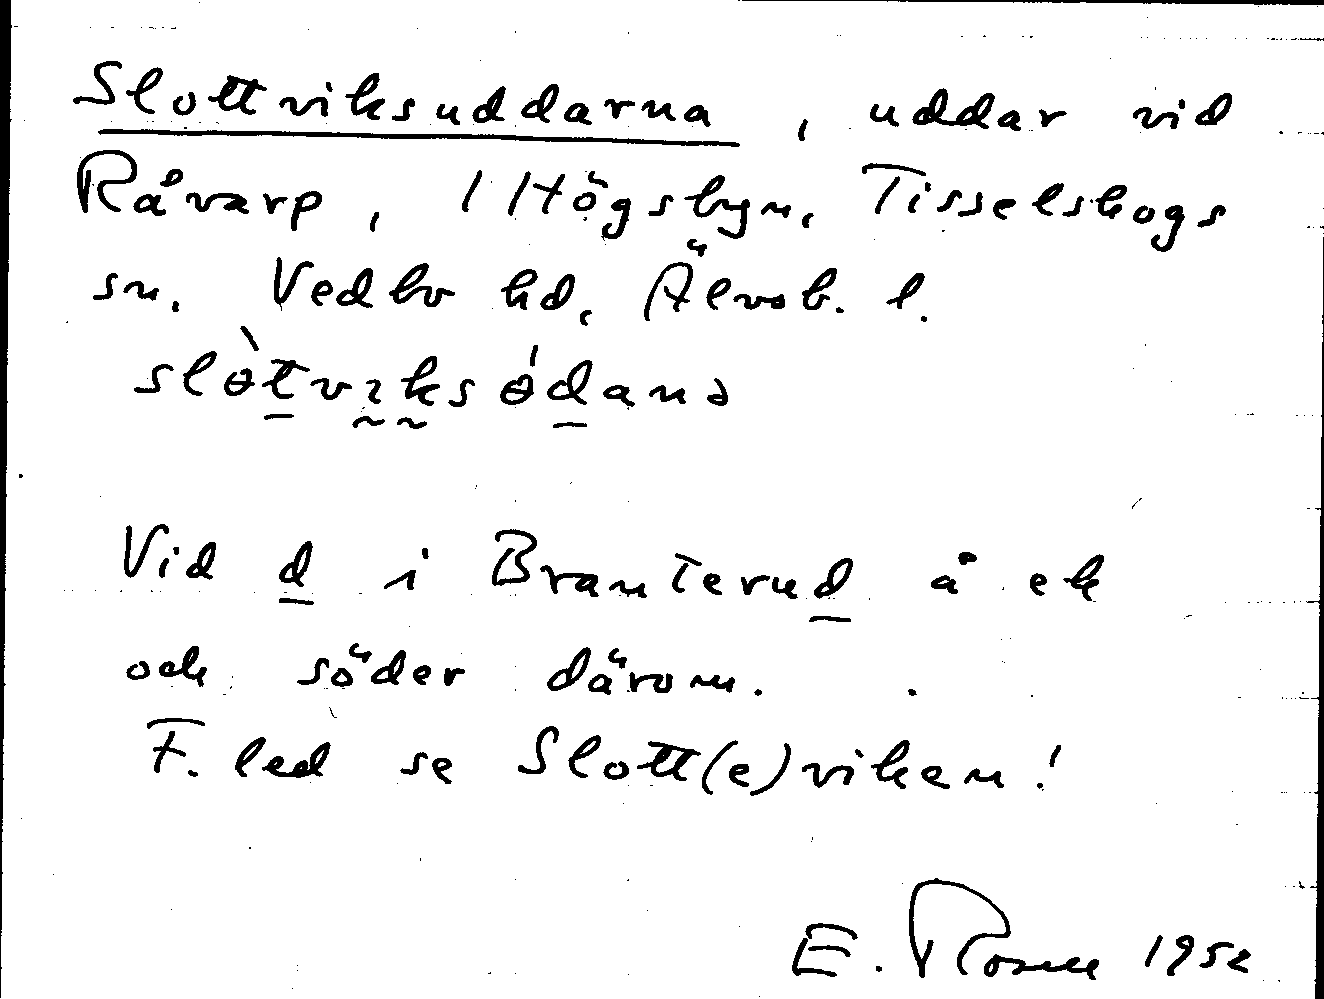 Slottviksuddarna, uddar vid
Råvarp, 1 Högsbyn, Tisselskogs
sn. Vedbo hd, Älvsb. l.
slòtviksódanə
Vid d i Branterud å ek
och söder därom.
F. led se Slott(e)viken!
E. 1952